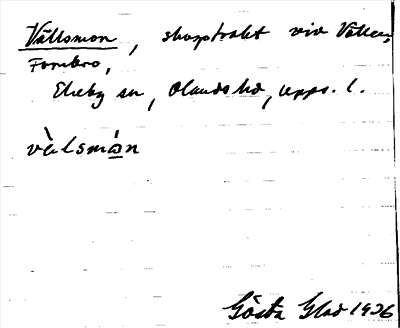 Vällsmon, skogstrakt vid Vällen,
Fornbro,
Ekeby sn, Olands hd, Upps. l.
vèlsmón
Gösta Glad 1926